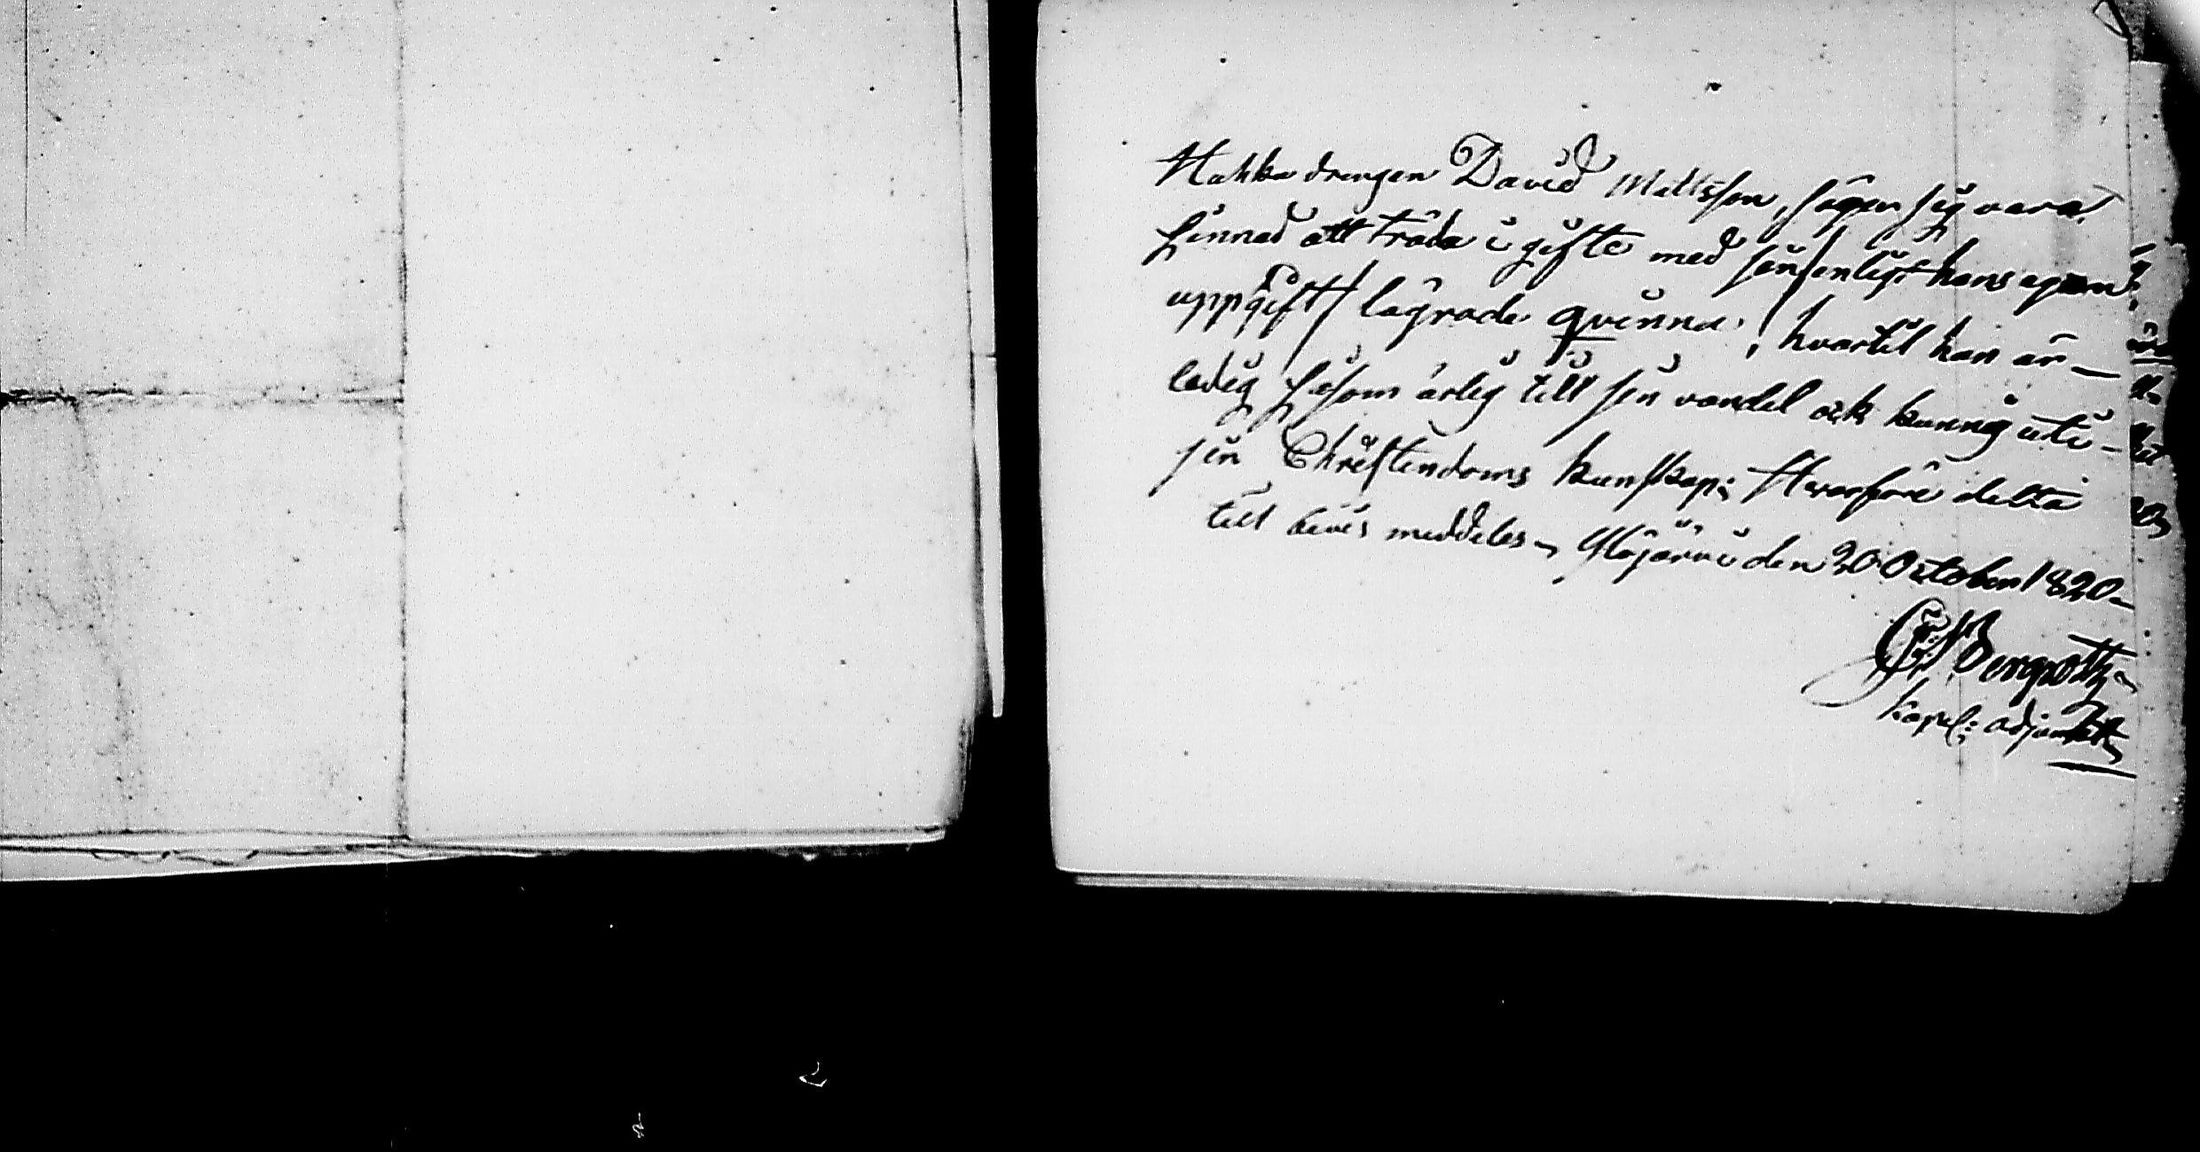 Hahka drengen David Mattsson, säger sig vara
sinnad att träda i gifte med sin /enligt hans egen
uppgift/ lägrade qvinna, hvartil han är
ledig såsom ärlig till sin vandel och kunnig uti
sin Christendoms kunskap; Hvarföre detta
till bevis meddeles Ylöjärvi den 20 October 1820
Bergroth
Kapel: adjunkt